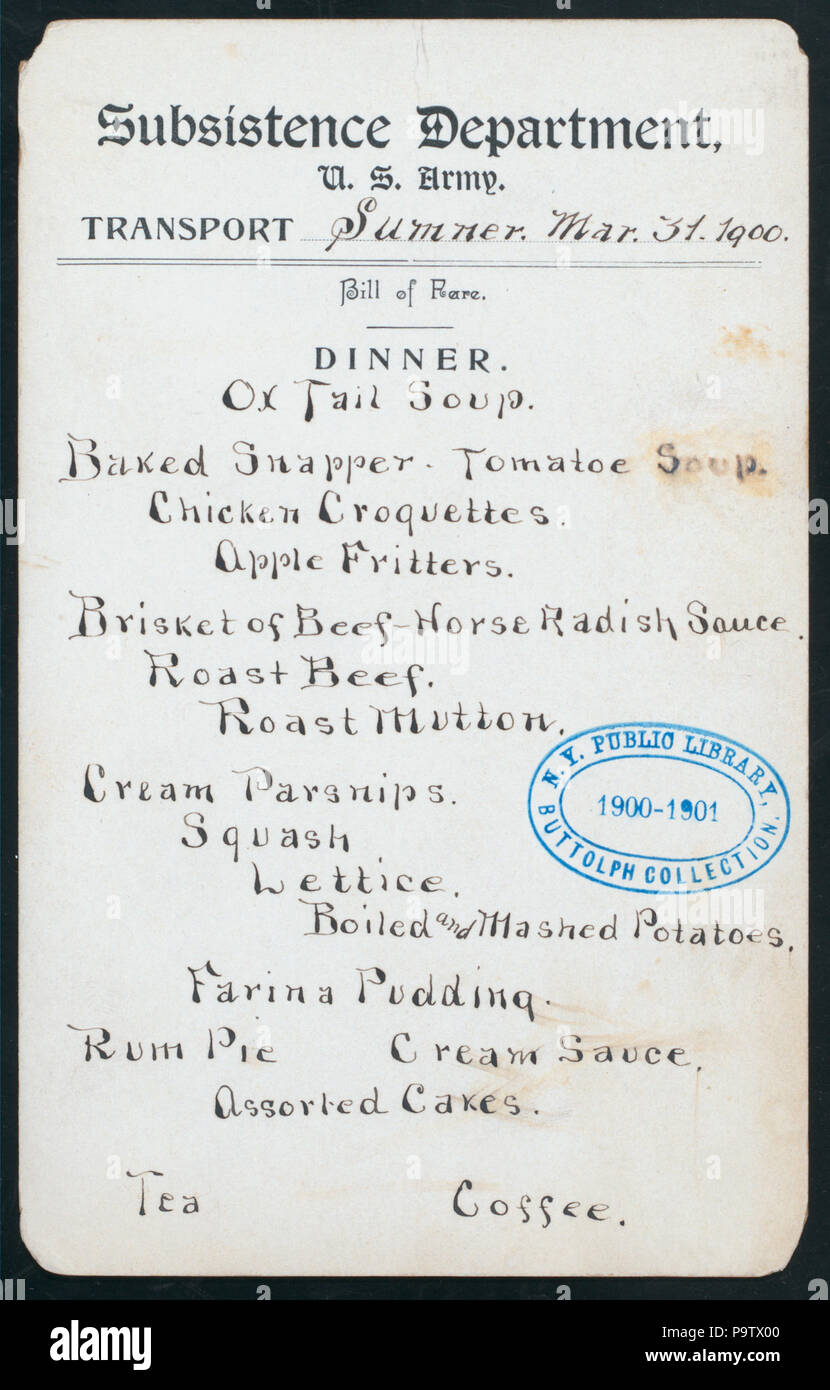 Subsistence Department,
U. S. Army.
TRANSPORT Sumner. Mar. 31. 1900.
Bill of Fare.
DINNER.
Ox Tail Soup.
Baked Snapper. Tomatoe Soup.
Chicken Croquettes.
Apple Fritters.
Brisket of Beef-Horse Radish Sauce.
Roast Beef.
Roast Mutton.
N. Y. PUBLIC LIBRARY,
1900-1901
BUTTOLPH COLLECTION.
Cream Parsnips.
Squash
Lettice.
Boiled and Mashed Potatoes.
Farina Pudding.
Rum Pie Cream Sauce.
Assorted Cakes.
Tea Coffee.
alamy
Image ID: P9TX00
www.alamy.com